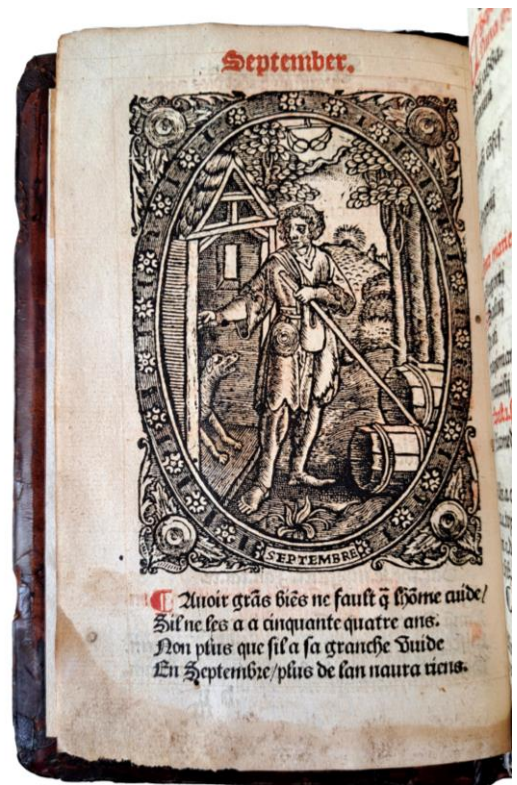 September.
SEPTEMBRE
Auoir grãs biẽs ne fault q̃ lhõme cuide/
Sil ne les a a cinquante quatre ans.
Non plus que sil a sa granche vuide
En Septembre/plus de lan naura riens.